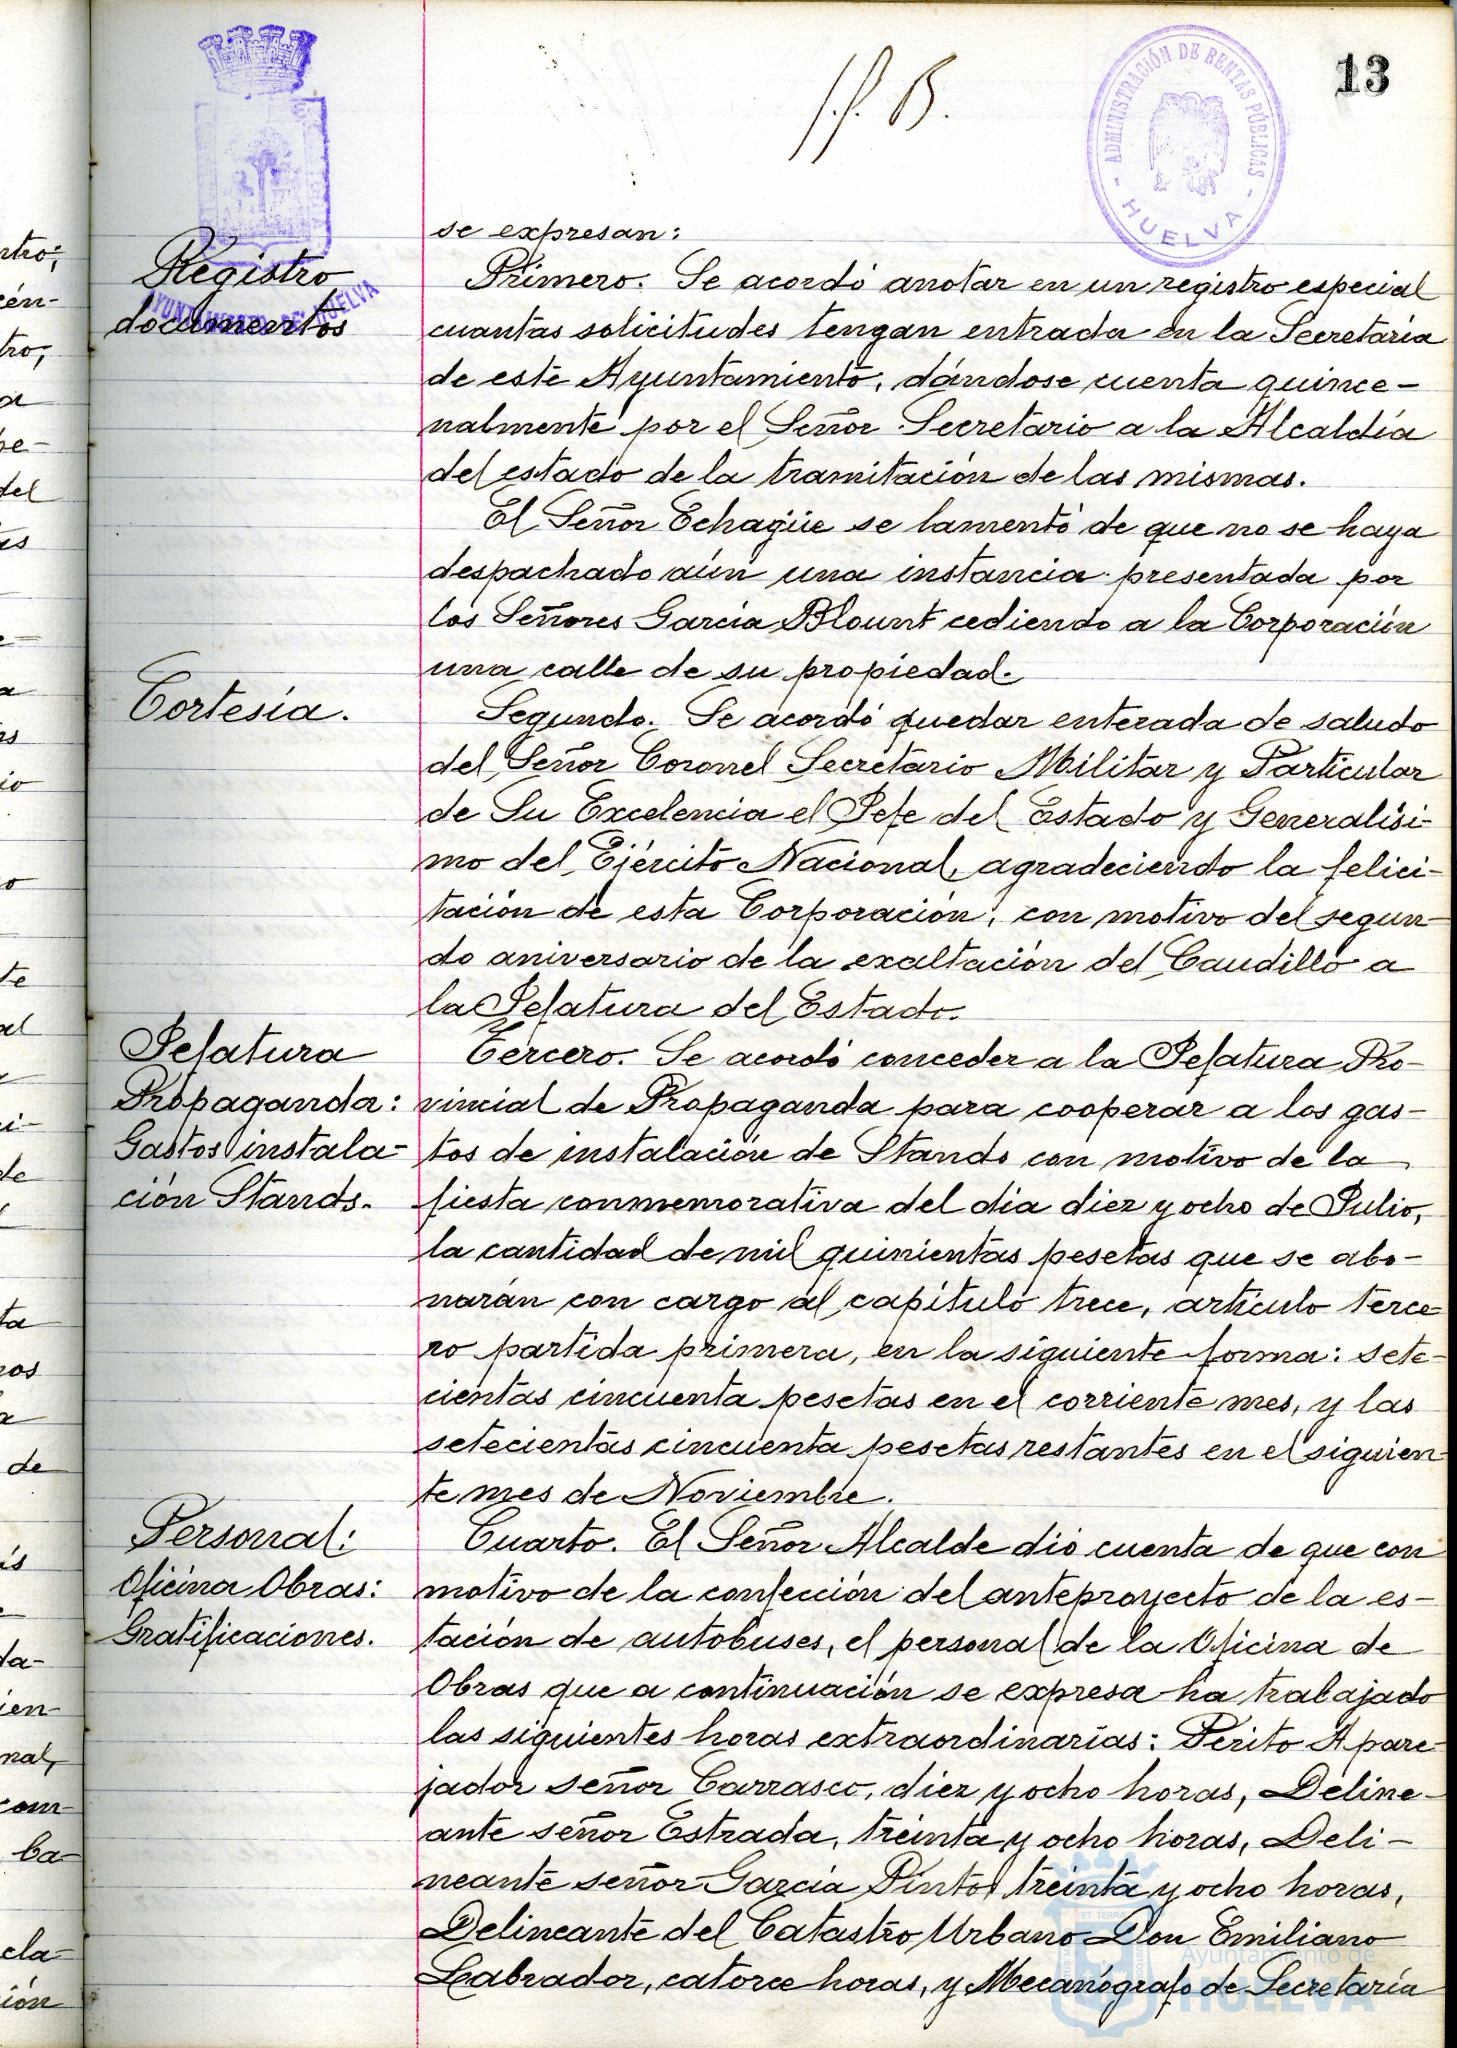 13
ADMINISTRACIÓN DE RENTAS PÚBLICAS
- HUELVA -
AYUNTAMIENTO DE HUELVA
se expresan:
Registro
documentos
Primero. Se acordó anotar en un registro especial
cuantas solicitudes tengan entrada en la Secretaría
de este Ayuntamiento, dándose cuenta quince-
nalmente por el Señor Secretario a la Alcaldía
del estado de la tramitación de las mismas.
El Señor Echagüe se lamentó de que no se haya
despachado aún una instancia presentada por
los Señores García Blount cediendo a la Corporación
una calle de su propiedad.
Cortesía.
Segundo. Se acordó quedar enterada de saludo
del Señor Coronel Secretario Militar y Particular
de Su Excelencia el Jefe del Estado y Generalísi-
mo del Ejército Nacional, agradeciendo la felici-
tación de esta Corporación, con motivo del segun-
do aniversario de la exaltación del Caudillo a
la Jefatura del Estado.
Jefatura
Propaganda:
Gastos instala-
ción Stands.
Tercero. Se acordó conceder a la Jefatura Pro-
vincial de Propaganda para cooperar a los gas-
tos de instalación de Stands con motivo de la
fiesta conmemorativa del día diez y ocho de Julio,
la cantidad de mil quinientas pesetas que se abo-
narán con cargo al capítulo trece, artículo terce-
ro partida primera, en la siguiente forma: sete-
cientas cincuenta pesetas en el corriente mes, y las
setecientas cincuenta pesetas restantes en el siguien-
te mes de Noviembre.
Personal:
Oficina Obras:
Gratificaciones.
Cuarto. El Señor Alcalde dió cuenta de que con
motivo de la confección del anteproyecto de la es-
tación de autobuses, el personal de la Oficina de
Obras que a continuación se expresa ha trabajado
las siguientes horas extraordinarias: Perito Apare-
jador señor Carrasco, diez y ocho horas, Deline-
ante señor Estrada, treinta y ocho horas, Deli-
neante señor García Pinto, treinta y ocho horas,
Delineante del Catastro Urbano Don Emiliano
Labrador, catorce horas, y Mecanógrafo de Secretaría
Ayuntamiento de
HUELVA